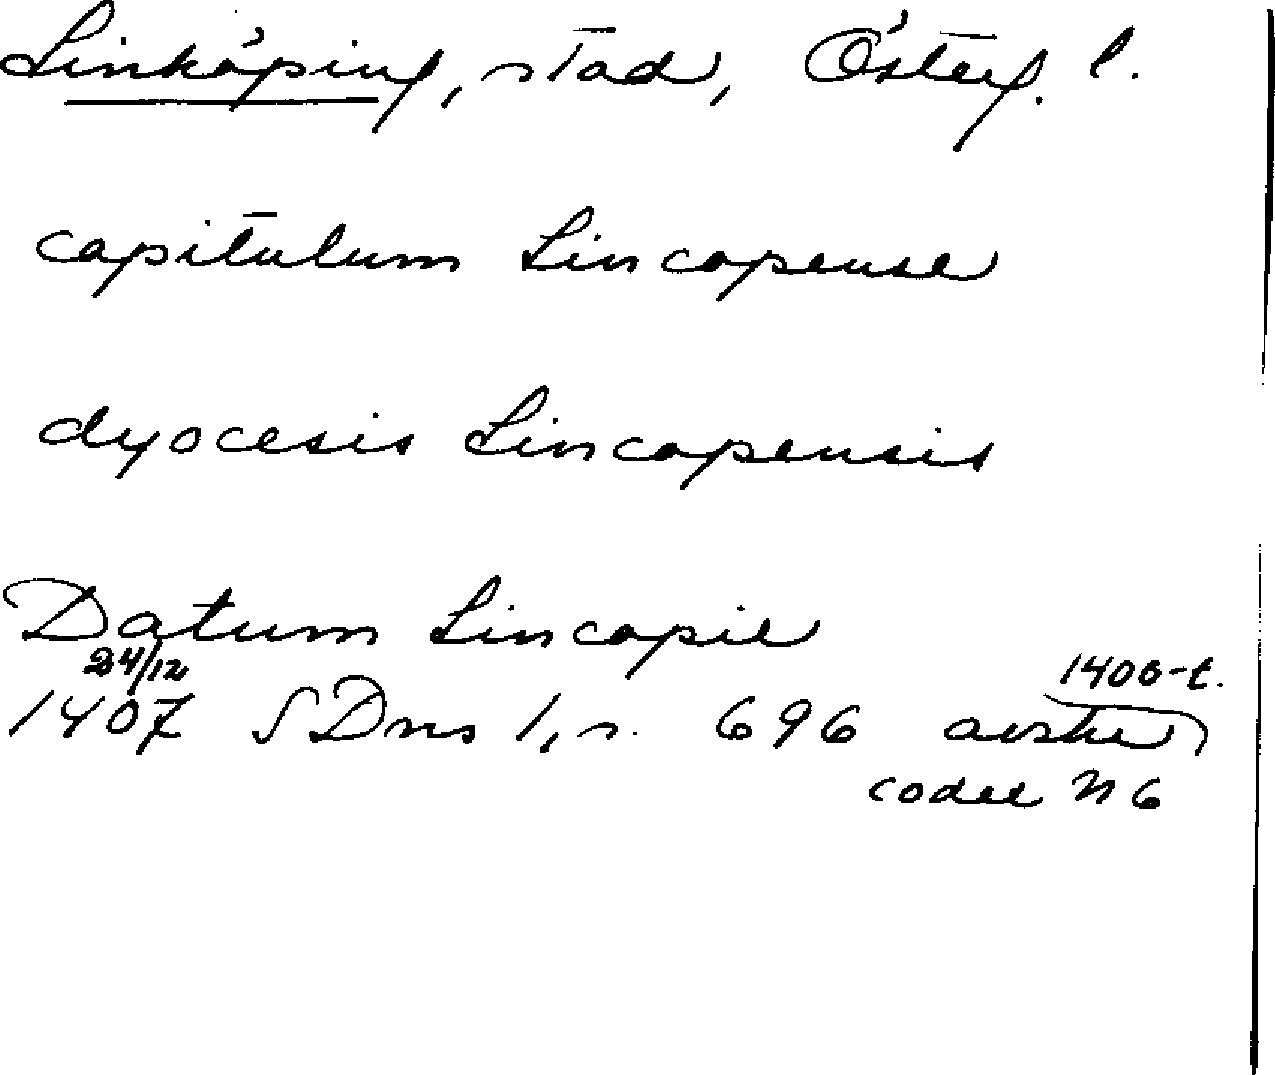 Linköping, stad, Österg. l.
capitulum Lincopense
dyocesis Lincopensis
Datum Lincopie
24/12
1407 SDns 1, s. 696 avskr
1400-t.
codex N 6